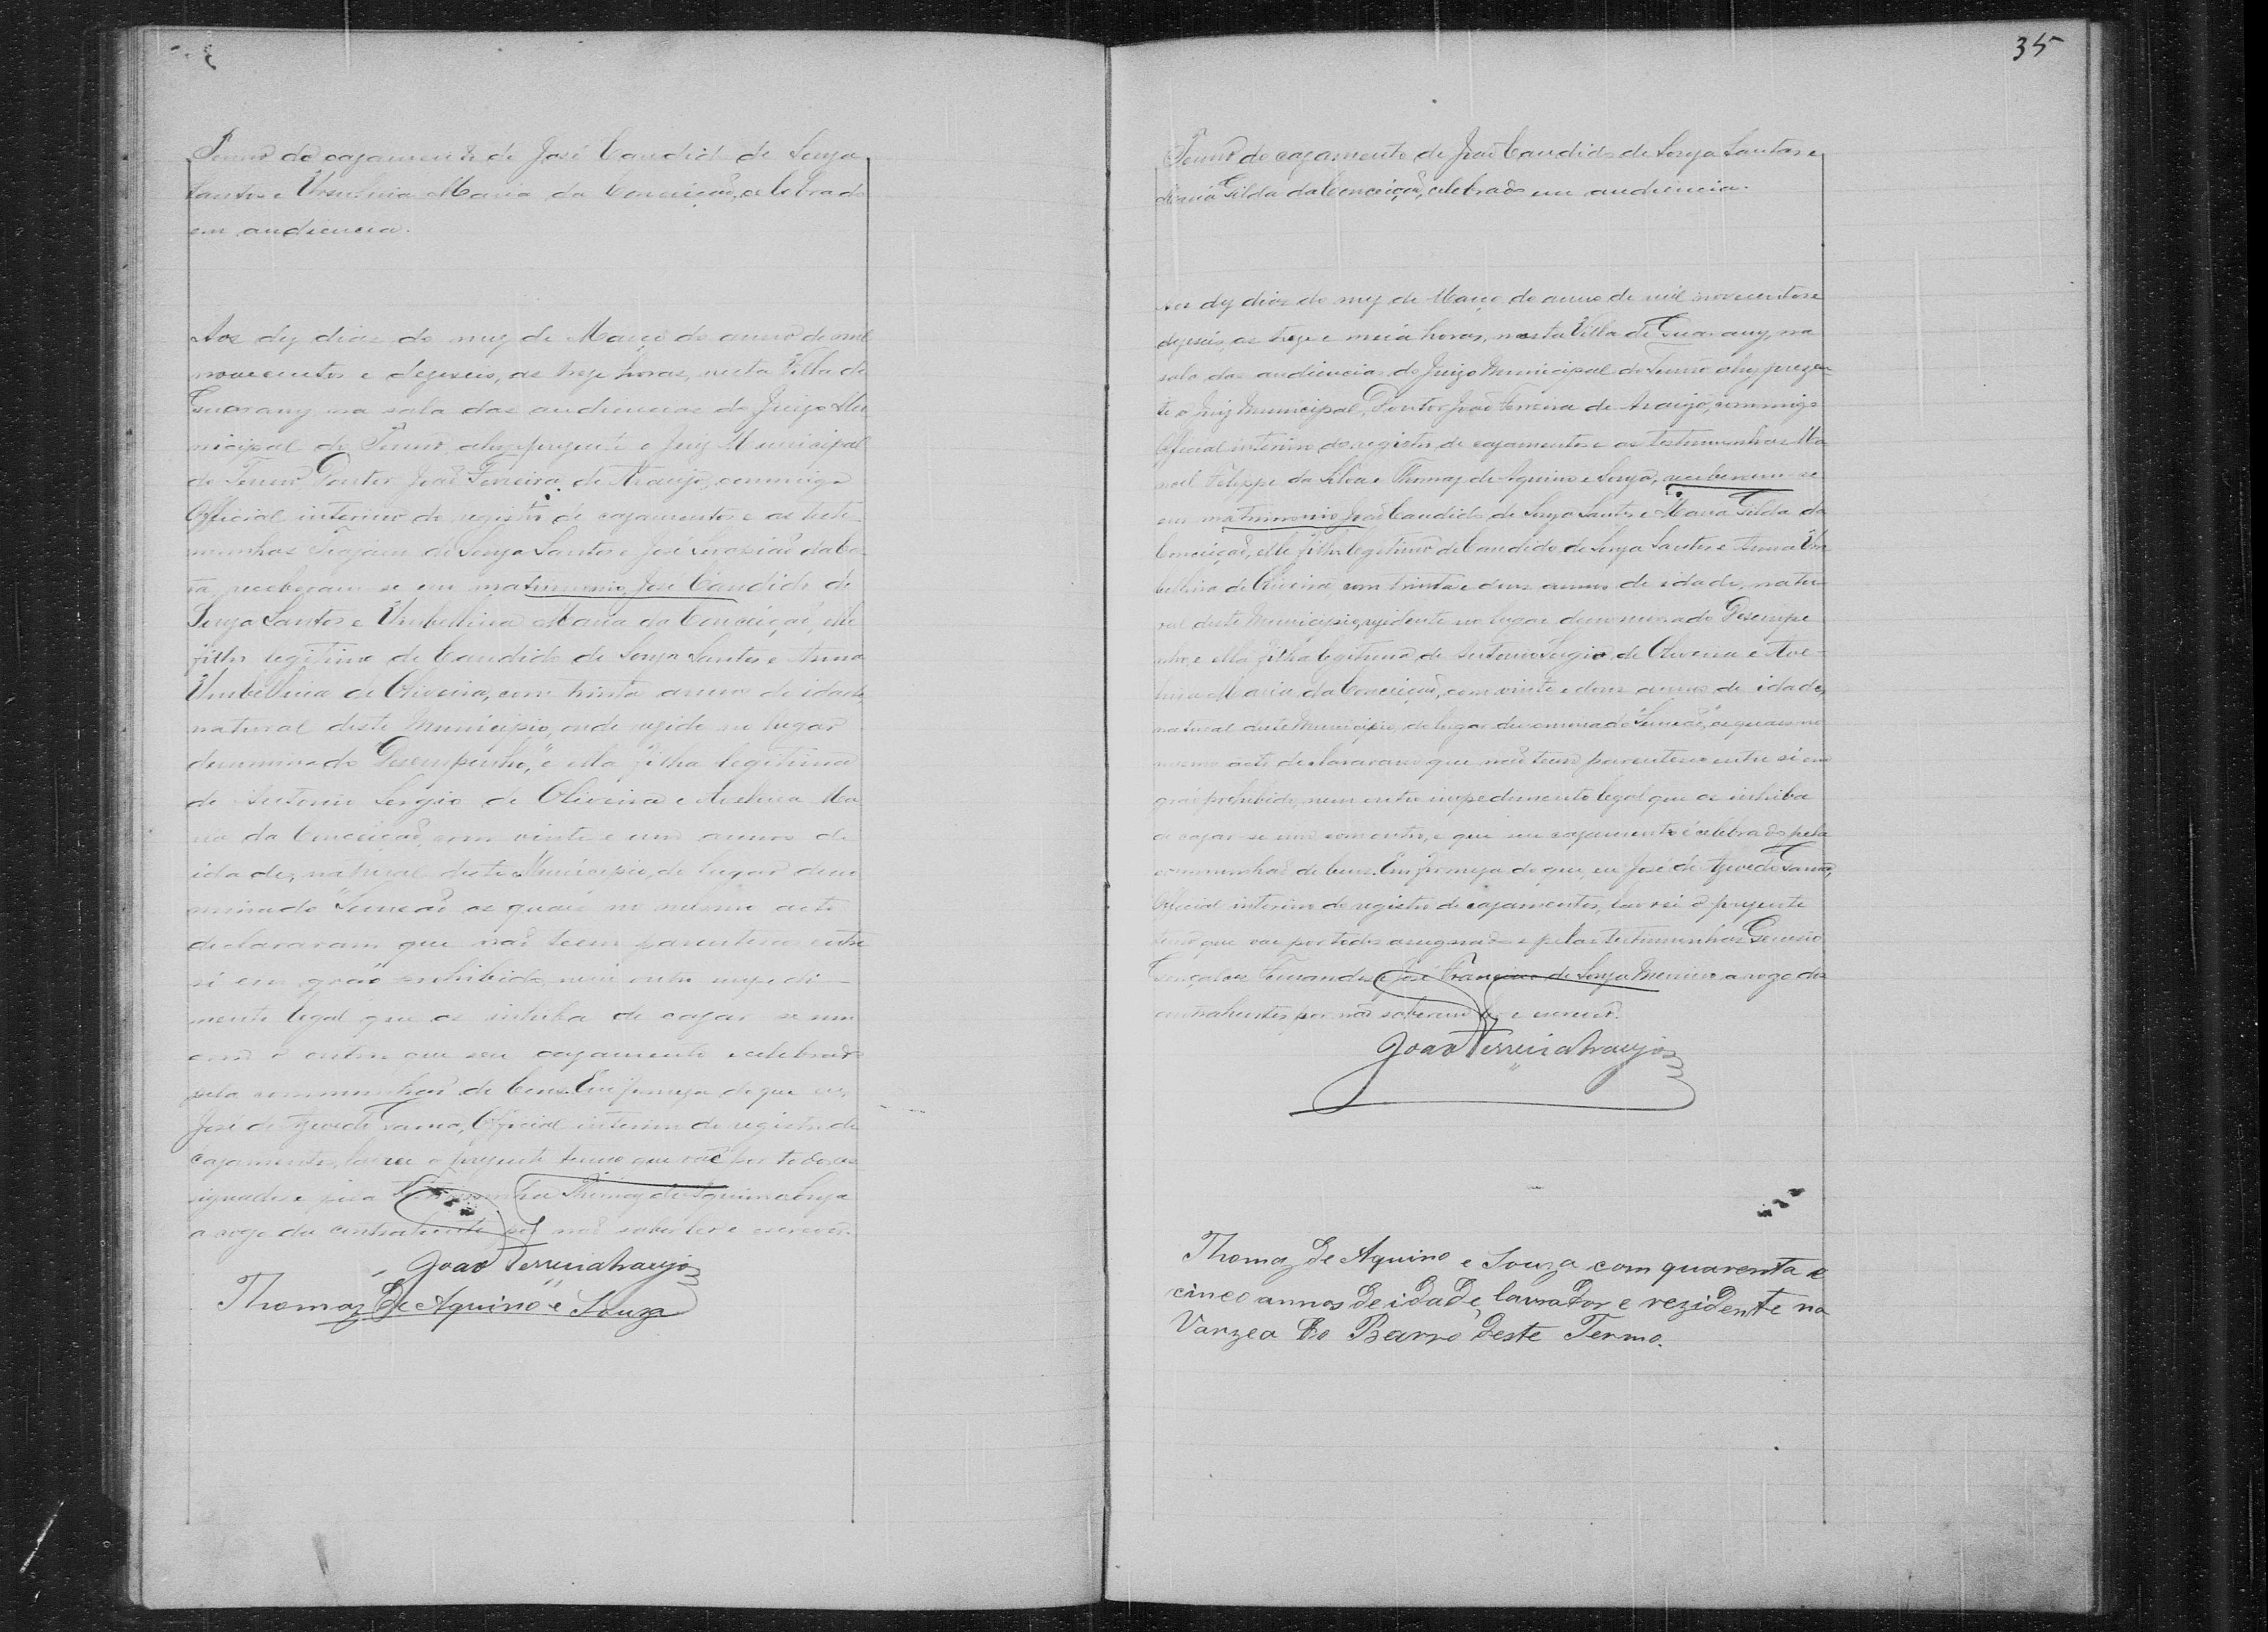 Termo de cazamento de José Candido de Souza
Santos e Ursulina Maria da Conceição, celebrado
em audiencia.
Aos dez dias do mez de Março do anno de mil
novecentos e dezeseis, as treze horas, nesta Villa de
Guarany na sala das audiencias do Juizo Mu
nicipal do Termo, ahi prezente o Juiz Municipal
do Termo Doutor João Ferreira de Araujo, commigo
Official interino do registro de cazamentos e as teste
munhas Trajano de Souza Santos e José da Cos
ta receberam se em matrimonio José Candido de
Souza Santos e Umbellina Maria da Conceição, elle
filho legitimo de Candido de Souza Santos e Anna
Umbellina de Oliveira, com trinta annos de idade,
natural deste Municipio, onde rezide no lugar
denominado "Desempenho", e ella filha legitima
de Antonio Sergio de Oliveira e Avelina Ma
ria da Conceição, com vinte e um annos de
idade, natural deste Municipio, do lugar deno
minado "Simeão" os quaes no mesmo acto
declararam que não teem parentesco entre
si em gráo prohibido, nem outro impedi-
mento legal que os inhiba de cazar se um
com o outro e que seu cazamento é celebrado
pela communhão de bens. Em firmeza do que eu,
José de Azevedo, Official interino do registro de
cazamentos, lavrei o prezente termo que vae por todos as
signado e pela testemunha Thomaz de Aquino e Souza
a rogo da contrahente por não saber ler e escrever.
João Ferreira Araujo
Thomaz De Aquino e Souza
35
Termo do cazamento de João Candido de Souza Santos e
Maria Tilda da Conceição, celebrado em audiencia.
Aos dez dias do mez de Março do anno de mil novecentos e
dezeseis, as treze e meia horas, nesta Villa de Guarany, na
sala das audiencias do Juizo Municipal do Termo ahi prezen
te o Juiz Municipal, Doutor João Ferreira de Araujo, commigo
Official interino do registro de cazamentos e as testemunhas Ma
noel Felippe da Silva e Thomaz de Aquino e Souza, receberam se
em matrimonio João Candido de Souza Santos e Maria Tilda da
Conceição, elle filho legitimo de Candido de Souza Santos e Anna Um
bellina de Oliveira com trinta e dous annos de idade, natu
ral deste Municipio, rezidente no lugar denominado Desempe
nho, e ella filha legitima de Antonio Sergio de Oliveira e Ave-
lina Maria da Conceição, com vinte e dous annos de idade,
natural deste Municipio, do lugar denominado "Simeão", os quaes no
mesmo acto declararam que não teem parentesco entre si em
gráo prohibido, nem outro impedimento legal que os inhiba
de cazar-se um com outro, e que seu cazamento é celebrado pela
communhão de bens. Em firmeza do que, eu José de Azevedo,
Official interino do registro de cazamentos, lavrei o prezente
termo que vae por todos assignado e pelas testemunhas
Gonçalves Fernandes e José Francisco de Souza a rogo dos
contrahentes por não saberem ler e escrever.
João Ferreira Araujo
Thomaz De Aquino e Souza com quarenta e
cinco annos De idaDe, lavraDor e reziDente na
Varzea Do Barro Deste Termo.